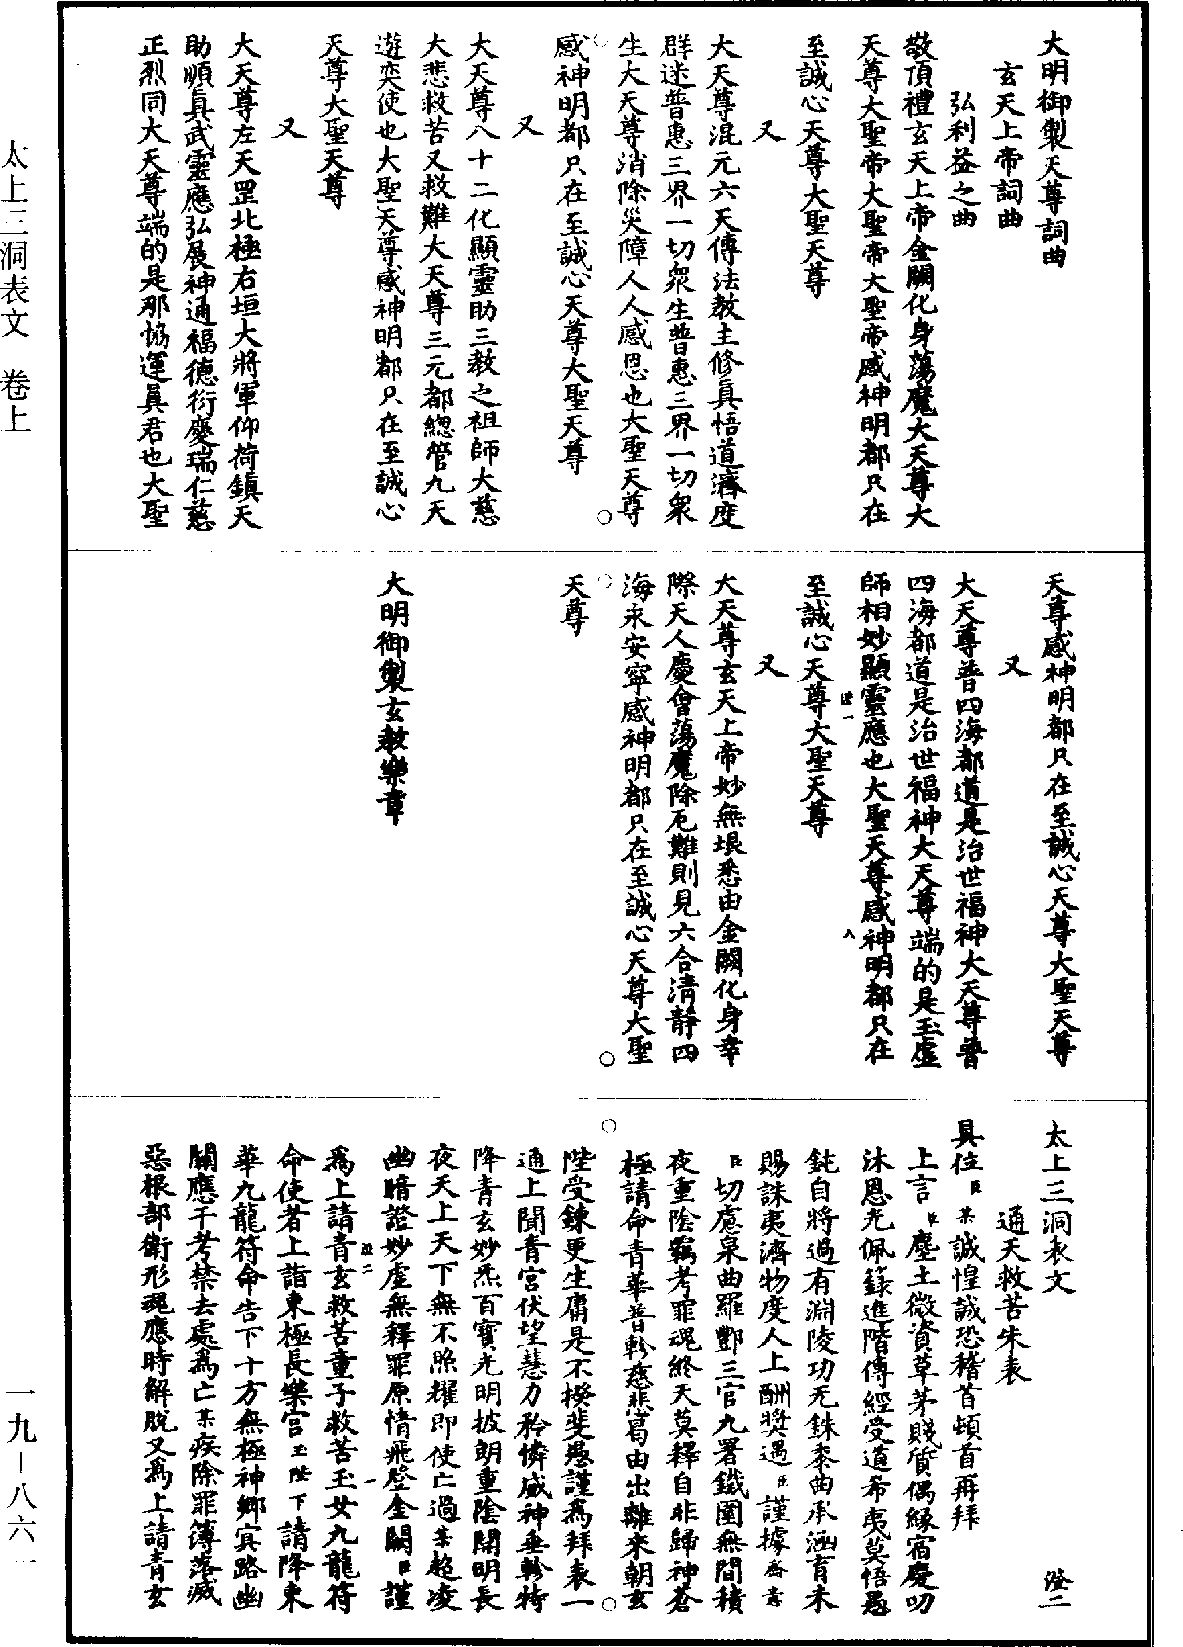 大明御製天尊詞曲
玄天上帝詞曲
弘利益之曲
敬頂禮玄天上帝金闕化身蕩魔大天尊大
天尊大聖帝大聖帝大聖帝感神明都只在
至誠心天尊大聖天尊
又
大天尊混元六天傳法教主修真悟道濟度
群迷普惠三界一切衆生普惠三界一切衆
生大天尊消除災障人人感恩也大聖天尊
感神明都只在至誠心天尊大聖天尊
又
大天尊八十二化顯靈助三教之祖師大慈
大悲救苦又救難大天尊三元都總管九天
遊奕使也大聖天尊感神明都只在至誠心
天尊大聖天尊
又
大天尊左天罡北極右垣大將軍仰荷鎮天
助順真武靈應弘展神通福德衍慶瑞仁慈
正烈同大天尊端的是那協運真君也大聖
天尊感神明都只在至誠心天尊大聖天尊
又
大天尊普四海都道是治世福神大天尊普
四海都道是治世福神大天尊端的是玉虛
師相妙顯靈應也大聖天尊感神明都只在
至誠心天尊大聖天尊
又
大天尊玄天上帝妙無垠悉由金闕化身幸
際天人慶會蕩魔除厄難則見六合清靜四
海永安寧感神明都只在至誠心天尊大聖
天尊
大明御製玄教樂章
太上三洞表文
澄二
通天救苦朱表
具位臣某誠惶誠恐稽首頓首再拜
上言臣塵土微資草茅賤質偶緣宿慶叨
沐恩光佩籙進階傳經受道希夷莫悟愚
鈍自將過有淵陵功无銖黍曲承涵育未
賜誅夷濟物度人上酬獎遇臣謹據齋意
臣切慮泉曲羅酆三官九署鐵圍無間積
夜重陰羈考罪魂終天莫釋自非歸神蒼
極請命青華普軫慈悲曷由出離來朝玄
陛受鍊更生庸是不揆斐愚謹爲拜表一
通上聞青宮伏望慧力矜憐威神垂軫特
降青玄妙炁百寶光明披朗重陰開明長
夜天上天下無不照耀即使亡過某超凌
幽暗證妙虛無釋罪原情飛登金闕臣謹
爲上請青玄救苦童子救苦玉女九龍符
命使者上詣東極長樂宮玉陛下請降東
華九龍符命告下十方無極神鄉冥路幽
關應干考禁去處爲亡某疾除罪簿落滅
惡根部衛形魂應時解脫又爲上請青玄
太上三洞表文　卷上
一九－八六一